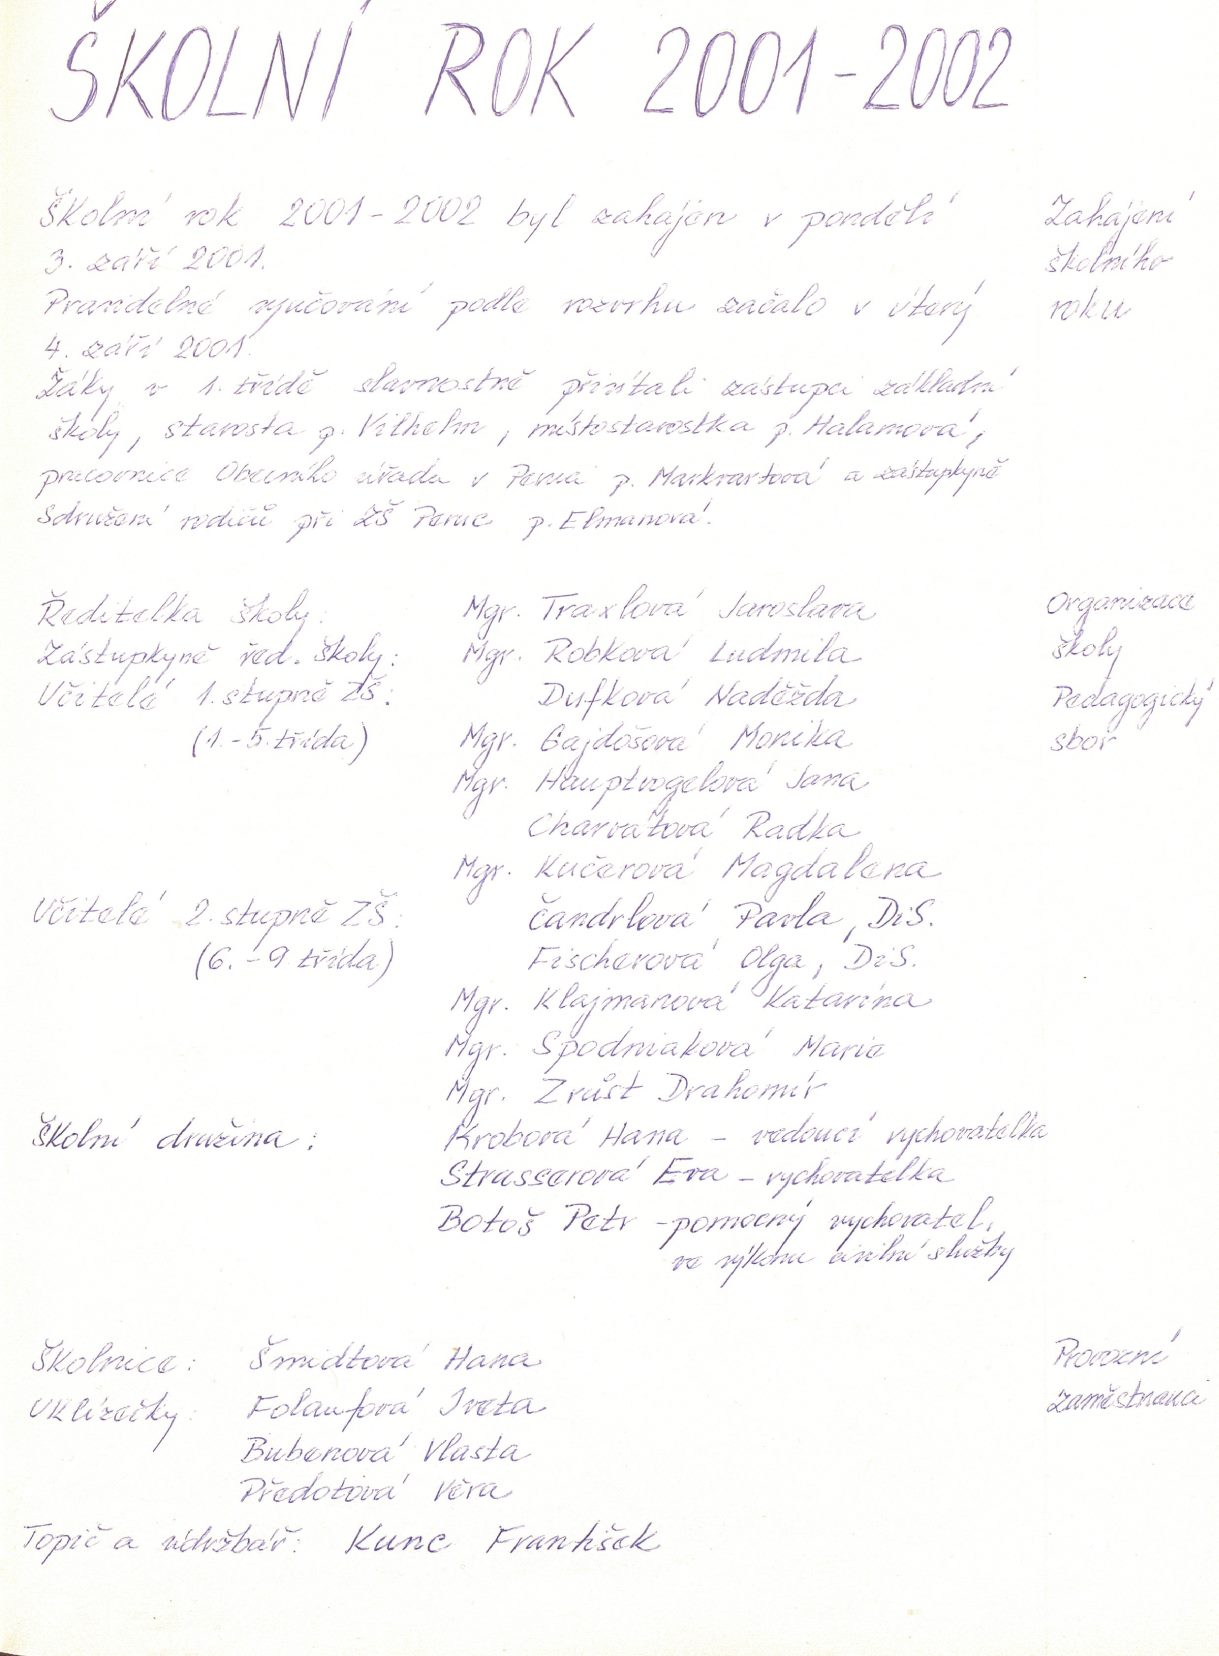 ŠKOLNÍ ROK 2001-2002
Školní rok 2001-2002 byl zahájen v pondělí
3. září 2001.
Pravidelné vyučování podle rozvrhu začalo v úterý
4. září 2001.
Žáky v 1. třídě slavnostně přivítali zástupci základní
školy, starosta p. Vilhelm, místostarostka p. Halamová,
pracovnice Obecního úřadu v Peruci p. Markvartová a zástupkyně
Sdružení rodičů při ZŠ Peruc p. Elmanová.
Zahájení
školního
roku
Ředitelka školy: Mgr. Traxlová Jaroslava
Zástupkyně řed. školy: Mgr. Robková Ludmila
Učitelé 1. stupně ZŠ: Dufková Naděžda
(1.-5. třída) Mgr. Gajdošová Monika
Mgr. Hauptvogelová Jana
Charvátová Radka
Mgr. Kučerová Magdalena
Učitelé 2. stupně ZŠ: Čandrlová Pavla, DiS.
(6.-9. třída) Fischerová Olga, DiS.
Mgr. Klajmanová Katarína
Mgr. Spodniaková Marie
Mgr. Zrůst Drahomír
Školní družina: Krobová Hana - vedoucí vychovatelka
Strasserová Eva - vychovatelka
Botoš Petr - pomocný vychovatel,
ve výkonu civilní služby
Organizace
školy
Pedagogický
sbor
Školnice: Šmidtová Hana
Uklízečky: Folaufová Iveta
Bubenová Vlasta
Předotová Věra
Topič a údržbář: Kunc František
Provozní
zaměstnanci